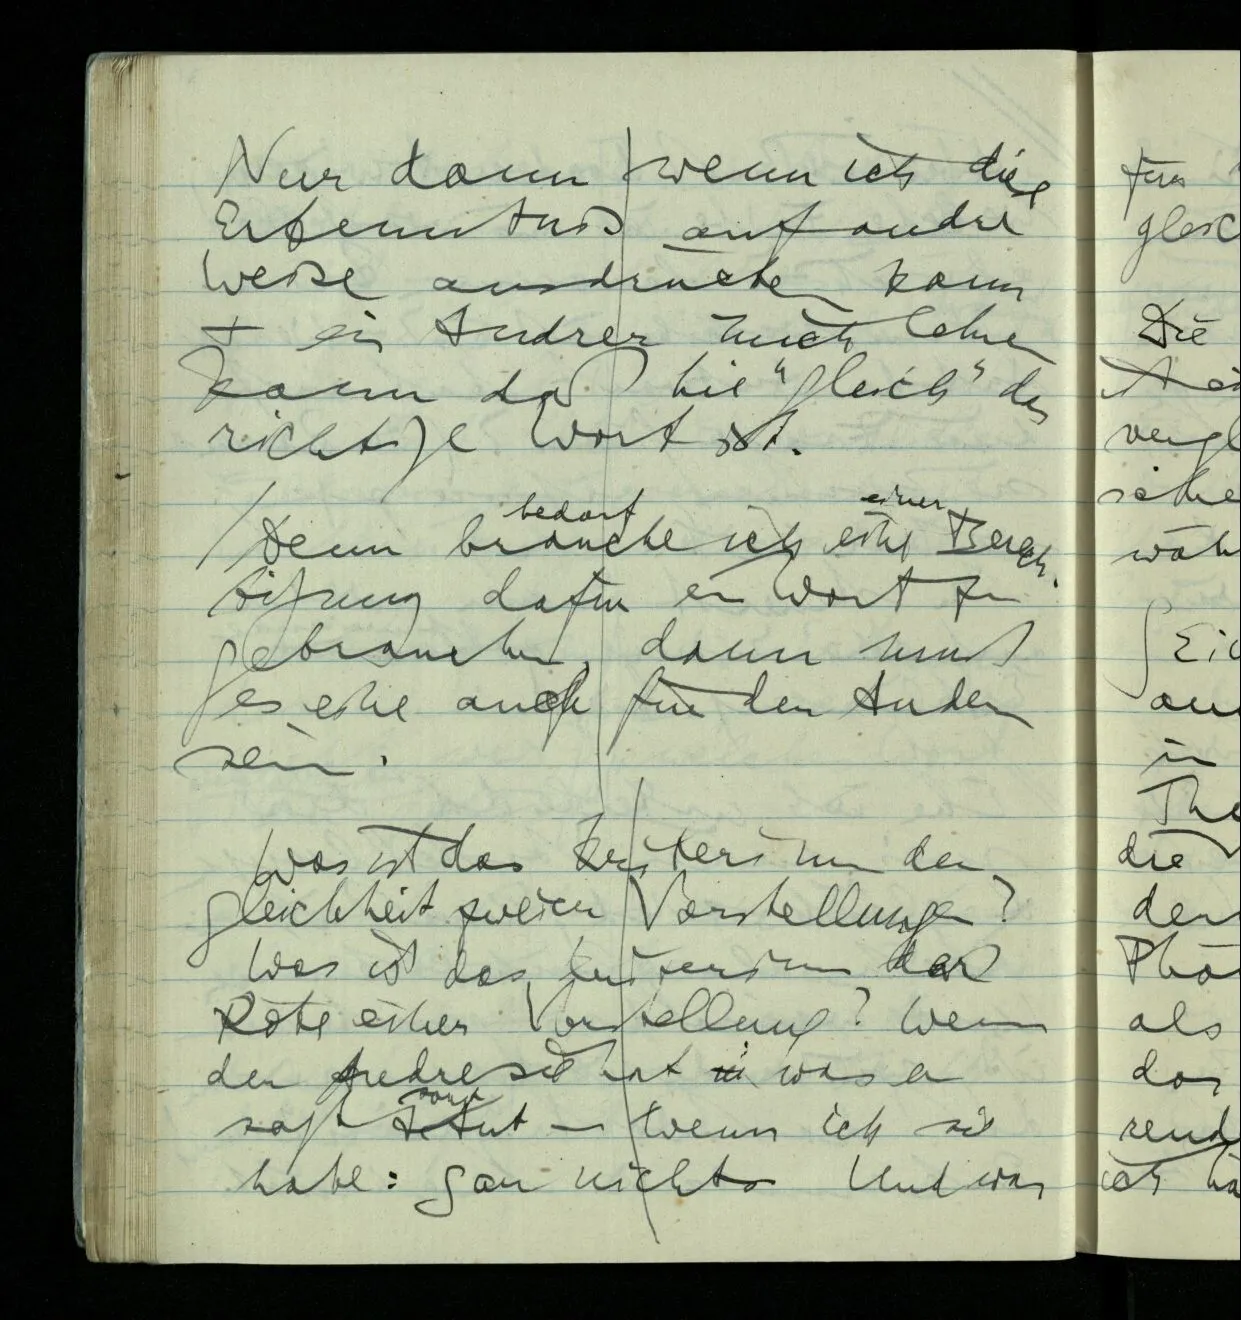 Nur dann wenn ich die
Erkenntnis auf andre
Weise ausdrücken kann
+ ein Andrer mich lehren
kann daß hie "gleich" das
richtige Wort ist.
bedarf einer
Denn brauche ich eine Berech-
tigung dafür ein Wort zu
gebrauchen, dann muß
es eine auch für den Andern
sein.
Was ist das Kriterium der
gleichheit zweier Vorstellungen?
Was ist das Kriterium der
Röte einer Vorstellung? Wenn
der Andre sie hat was er
sagt und tut – Wenn ich sie
habe: gar nichts Und was
für
gleic
Die
vergl
wäh
in
die
den
als
das
ich